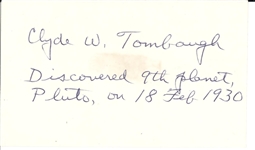 Clyde W. Tombaugh
Discovered 9th planet,
Pluto, on 18 Feb. 1930